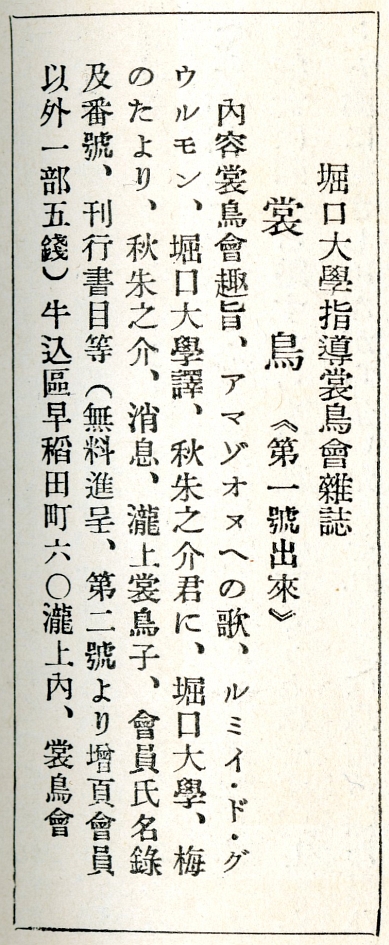 堀口大學指導裳鳥會雜誌
裳鳥《第一號出來》
內容裳鳥會趣旨、アマゾオヌへの歌、ルミイ・ド・グ
ウルモン、堀口大學譯、秋朱之介君に、堀口大學、梅
のたより、秋朱之介、消息、瀧上裳鳥子、會員氏名錄
及番號、刊行書目等（無料進呈、第二號より增頁會員
以外一部五錢）牛込區早稻田町六〇瀧上內、裳鳥會